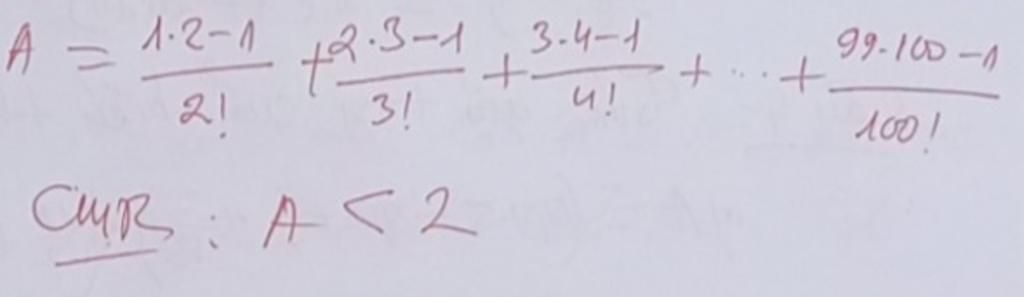 A = \frac{1.2-1}{2!} + \frac{2.3-1}{3!} + \frac{3.4-1}{4!} + ... + \frac{99.100-1}{100!}
CMR : A < 2